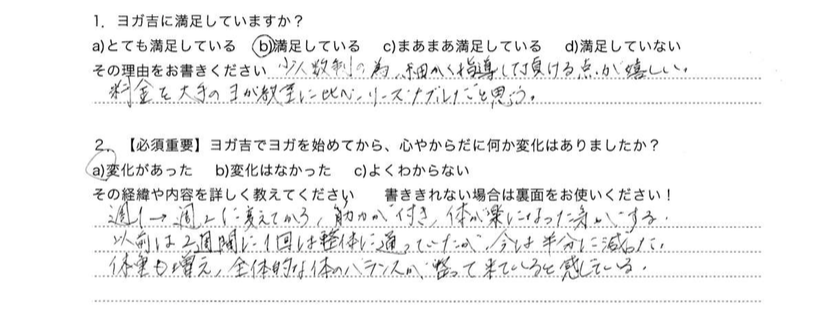 1．ヨガ吉に満足していますか？
a)とても満足している　b)満足している　c)まあまあ満足している　d)満足していない
その理由をお書きください 少人数制の為、細かく指導して頂ける点が嬉しい。
料金も大手のヨガ教室に比べリーズナブルだと思う。
2．【必須重要】ヨガ吉でヨガを始めてから、心やからだに何か変化はありましたか？
a)変化があった　b)変化はなかった　c)よくわからない
その経緯や内容を詳しく教えてください　書ききれない場合は裏面をお使いください！
週1→週2に変えてから、筋力が付き、体が楽になった気がする。
以前は2週間に1回は整体に通っていたが、今は半分に減った。
体重も増え、全体的な体のバランスが整って来ていると感じている。